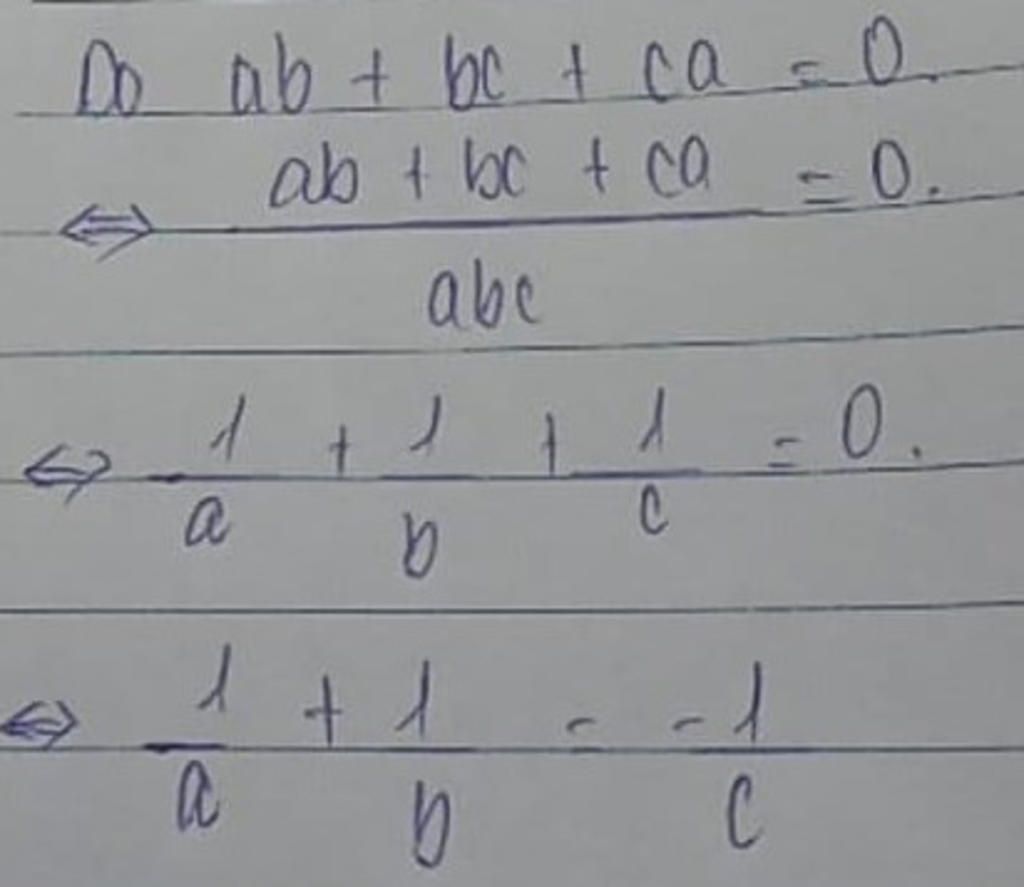 Do ab + bc + ca = 0.
⇔ (ab + bc + ca)/abc = 0.
⇔ 1/a + 1/b + 1/c = 0.
⇔ 1/a + 1/b = -1/c